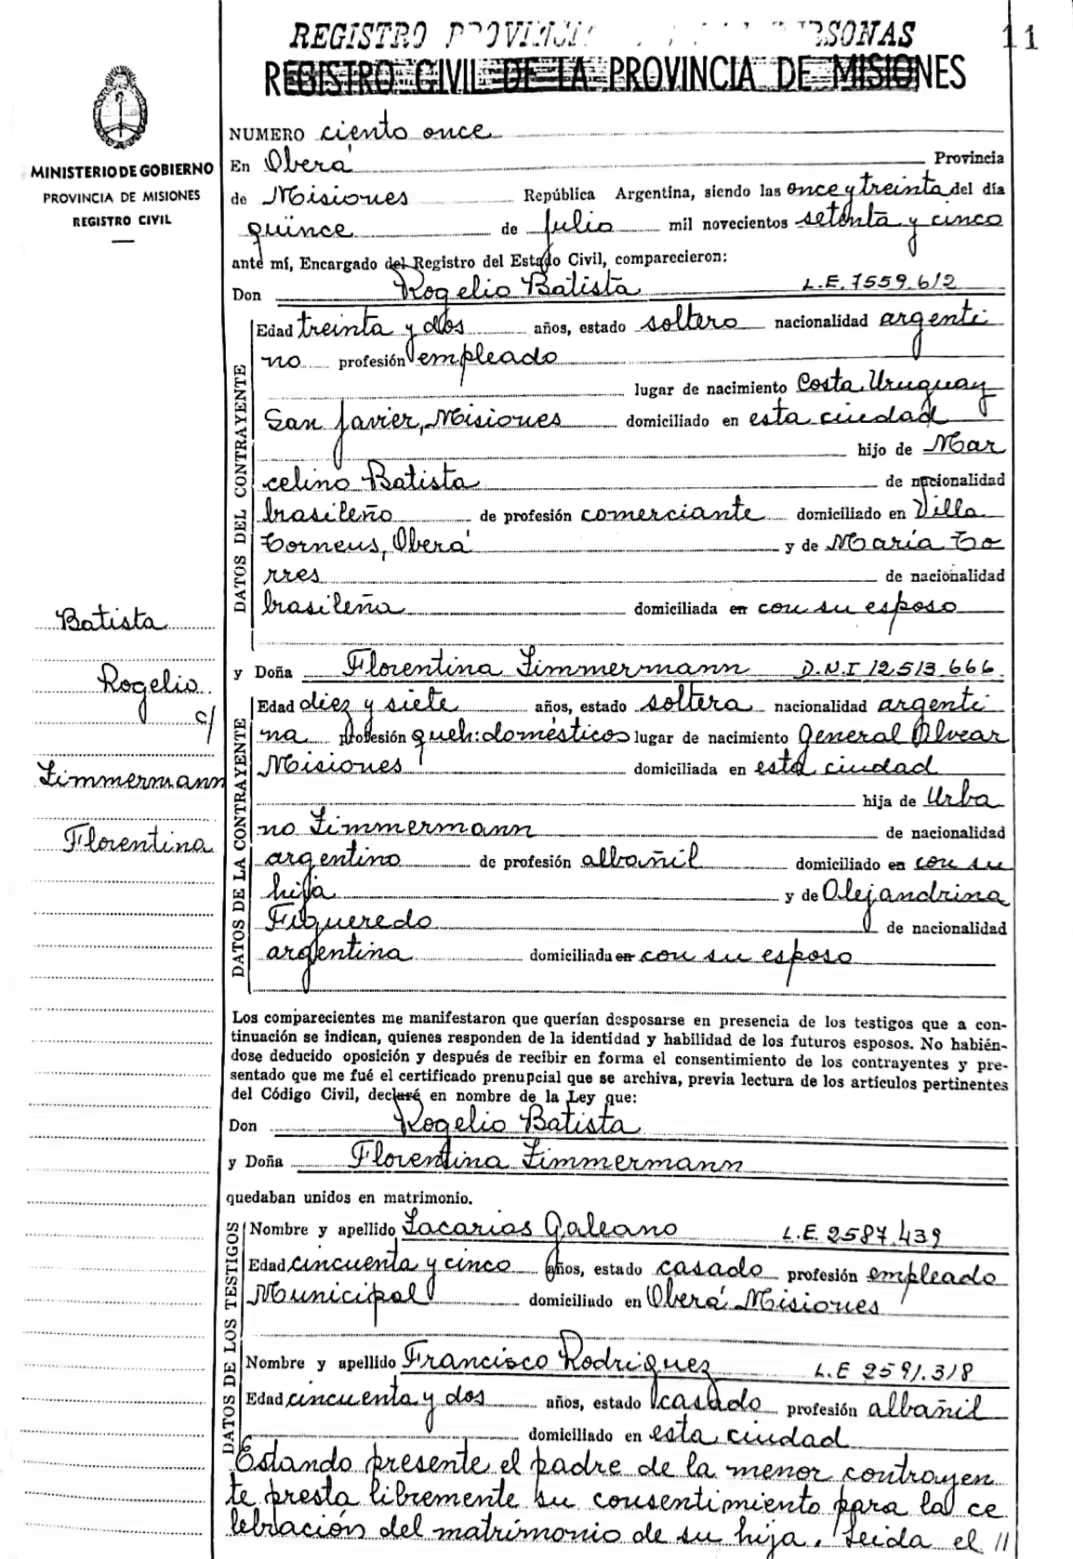 REGISTRO PROVINCIAL DE LAS PERSONAS
11
REGISTRO CIVIL DE LA PROVINCIA DE MISIONES
MINISTERIO DE GOBIERNO
PROVINCIA DE MISIONES
REGISTRO CIVIL
NUMERO ciento once
En Oberá Provincia
de Misiones República Argentina, siendo las once y treinta del día
quince de julio mil novecientos setenta y cinco
ante mí, Encargado del Registro del Estado Civil, comparecieron:
Don Rogelio Batista L.E. 7559.612
DATOS DEL CONTRAYENTE
Edad treinta y dos años, estado soltero nacionalidad argenti
no profesión empleado
lugar de nacimiento Costa Uruguay
San Javier, Misiones domiciliado en esta ciudad
hijo de Mar
celino Batista de nacionalidad
brasileño de profesión comerciante domiciliado en Villa
Torneus, Oberá y de María To
rres de nacionalidad
brasileña domiciliada en con su esposo
Batista
Rogelio
c/
Zimmermann
Florentina
y Doña Florentina Zimmermann D.N.I 12.513.666
DATOS DE LA CONTRAYENTE
Edad diez y siete años, estado soltera nacionalidad argenti
na profesión queh: domésticos lugar de nacimiento General Alvear
Misiones domiciliada en esta ciudad
hija de Urba
no Zimmermann de nacionalidad
argentino de profesión albañil domiciliado en con su
hija y de Alejandrina
Figueredo de nacionalidad
argentina domiciliada en con su esposo
Los comparecientes me manifestaron que querían desposarse en presencia de los testigos que a con-
tinuación se indican, quienes responden de la identidad y habilidad de los futuros esposos. No habién-
dose deducido oposición y después de recibir en forma el consentimiento de los contrayentes y pre-
sentado que me fué el certificado prenupcial que se archiva, previa lectura de los artículos pertinentes
del Código Civil, declaré en nombre de la Ley que:
Don Rogelio Batista
y Doña Florentina Zimmermann
quedaban unidos en matrimonio.
DATOS DE LOS TESTIGOS
Nombre y apellido Zacarias Galeano L.E. 2587.439
Edad cincuenta y cinco años, estado casado profesión empleado
Municipal domiciliado en Oberá Misiones
Nombre y apellido Francisco Rodriguez L.E 2591.318
Edad cincuenta y dos años, estado casado profesión albañil
domiciliado en esta ciudad
Estando presente el padre de la menor contrayen
te presta libremente su consentimiento para la ce
lebración del matrimonio de su hija. Leida el //